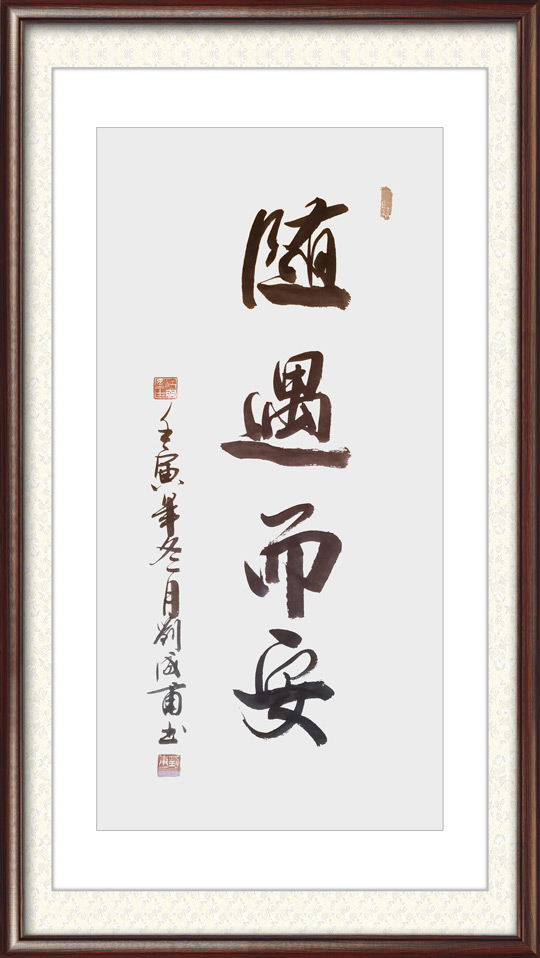 随遇而安
壬寅年冬二月劉成甫书